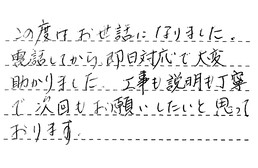 この度はお世話になりました。
電話してから即日対応で大変
助かりました。工事も説明も丁寧
で次回もお願いしたいと思って
おります。